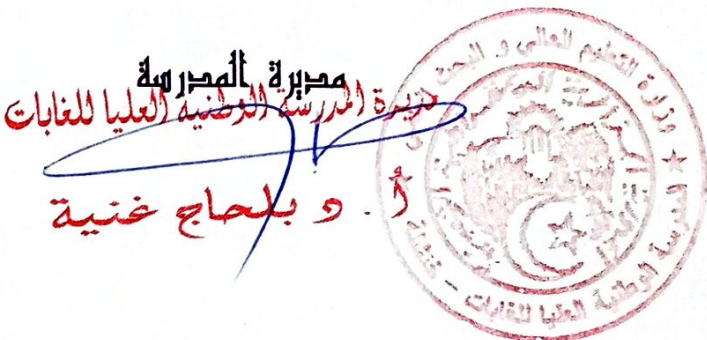 مديرة المدرسة
مديرة المدرسة الوطنية العليا للغابات
أ. د بلحاج غنية
وزارة التعليم العالي و البحث
المدرسة الوطنية العليا للغابات - خنشلة